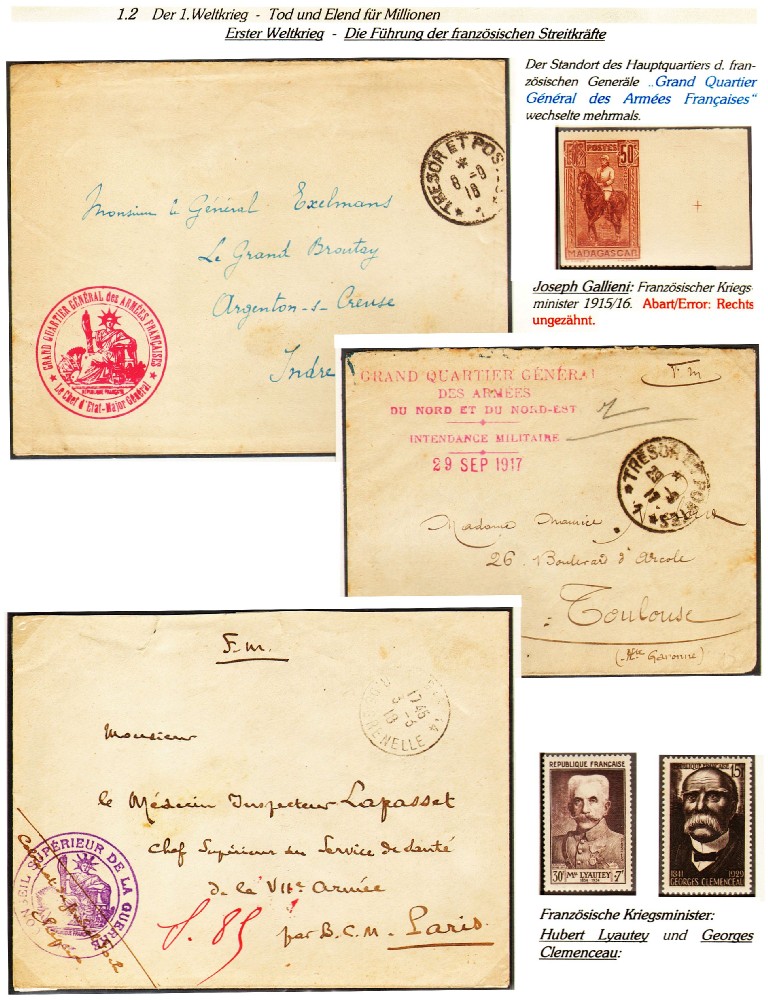 1.2 Der 1.Weltkrieg - Tod und Elend für Millionen
Erster Weltkrieg - Die Führung der französischen Streitkräfte
Der Standort des Hauptquartiers d. fran-
zösischen Generäle „Grand Quartier
Général des Armées Françaises“
wechselte mehrmals.
TRESOR ET POSTES
*
8 -9
18
Monsieur le Général Exelmans
Le Grand Broutay
Argenton-s-Creuse
Indre
GRAND QUARTIER GÉNÉRAL des ARMÉES FRANÇAISES
Le Chef d'Etat-Major Général
POSTES
50c
MADAGASCAR
Joseph Gallieni: Französischer Kriegs-
minister 1915/16. Abart/Error: Rechts
ungezähnt.
GRAND QUARTIER GÉNÉRAL
DES ARMÉES
DU NORD ET DU NORD-EST
INTENDANCE MILITAIRE
29 SEP 1917
F. M
TRESOR ET POSTES
Madame Maurice
26 Boulevard d'Arcole
Toulouse
(Hte Garonne)
F. M.
17 45
5 -3
18
GRENELLE
Monsieur
le Médecin Inspecteur Lapasset
Chef Supérieur du Service de Santé
de la VIIe Armée
par B.C.M. Paris
S. 85
CONSEIL SUPÉRIEUR DE LA GUERRE
REPUBLIQUE FRANÇAISE
30F MAL LYAUTEY +7F
1854-1934
15F
1841 1929
GEORGES CLEMENCEAU
Französische Kriegsminister:
Hubert Lyautey und Georges
Clemenceau: